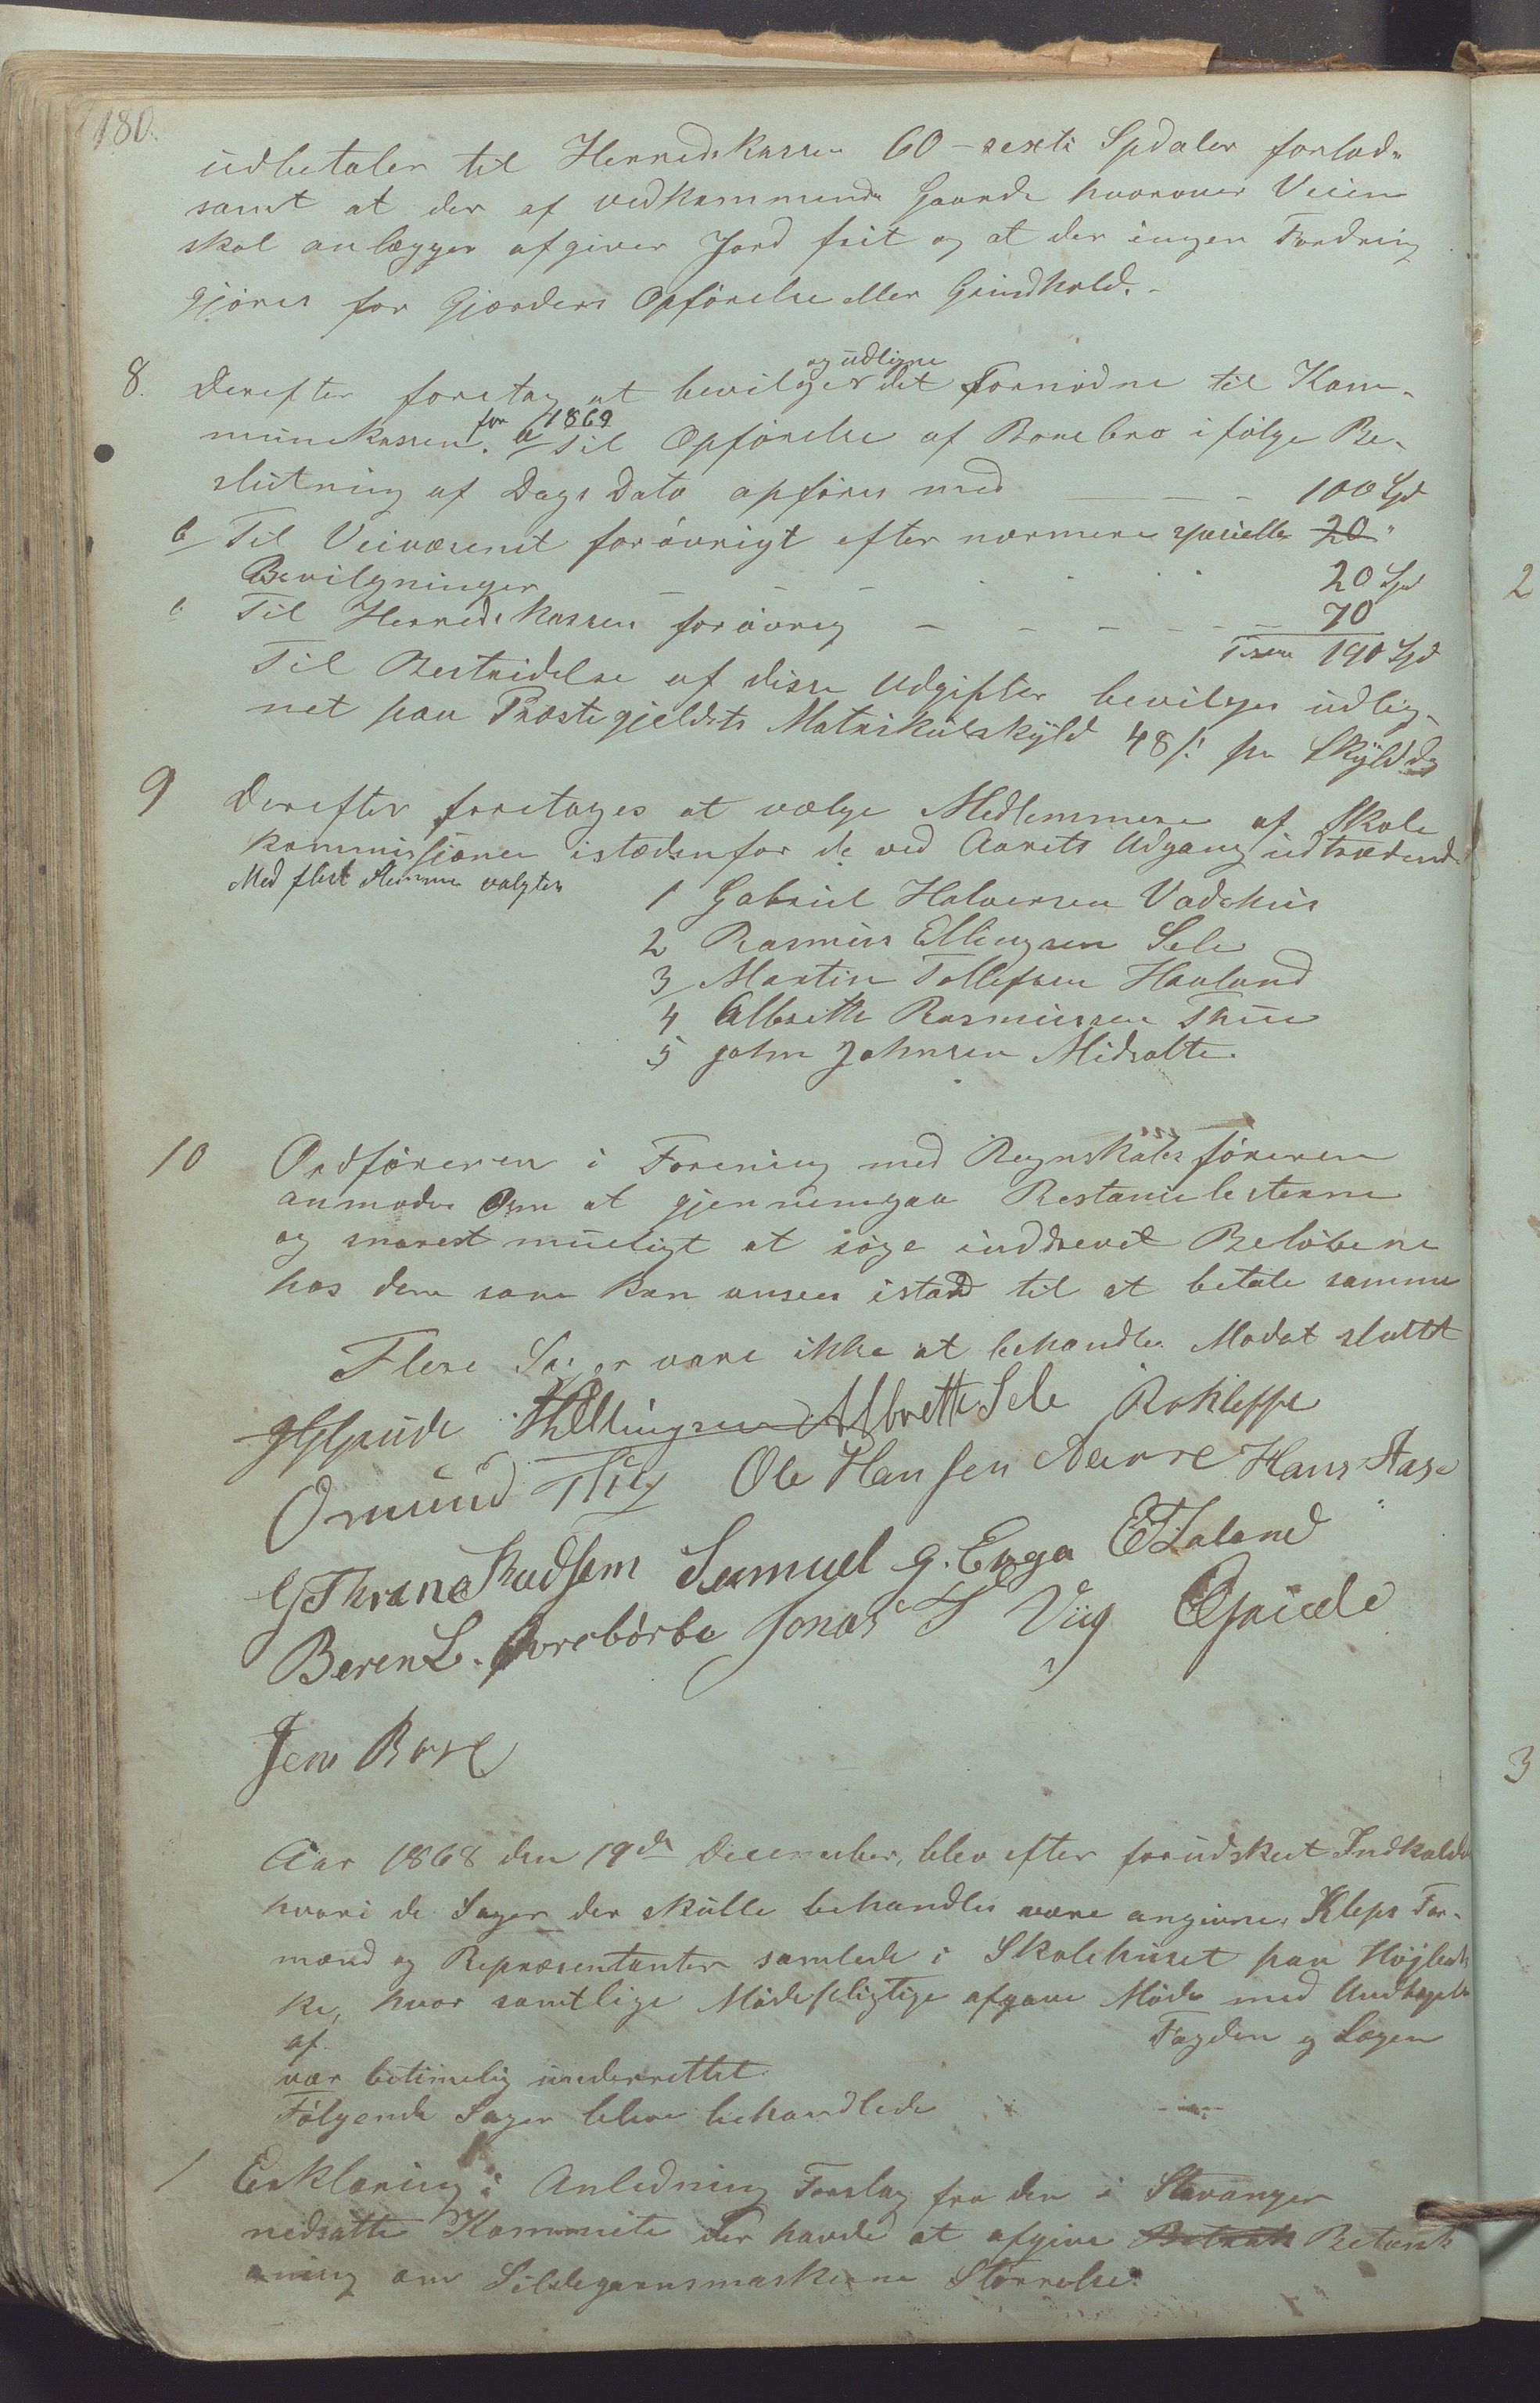 180.
udbetaler til Herredskassen 60 - sexti Spdaler forlods
samt at der af vedkommende Gaarde hvorover Veien
skal anlægges afgiver Jord frit og at der ingen Fordring
gjøres for Gjærders Opførelse eller Grindhold.-
8. Derefter foretag at bevilges og udligne det Fornødne til Kom-
munekassen for 1869. a/ Til Opførelse af Borebro ifølge Be-
slutning af Dags Dato opføres med - - - 100 Spd
b/ Til Veivæsenet forøvrigt efter nærmere specielle 20 "
Bevilgninger - - - 20 Spd
c Til Herredskassen forøvrig - - - - - 70
190 Spd
Til Bestridelse af disse Udgifter bevilges udlig-
net paa Præstegjeldets Matrikulskyld 48 ß pr Skylddr
9 Derefter foretages at vælge Medlemmer af Skole
kommissionen istædenfor de ved Aarets Udgang udtrædende
Med flest Stemmer valgtes
1 Gabriel Halversen Vadshus
2 Rasmus Ellingsen Sele
3 Martin Tollefsen Haaland
4 Albrette Rasmussen Thuu
5 John Johnsen Midsolte.
10 Ordføreren i Forening med Regnskabsføreren
anmodes om at gjennemgaa Restanselisterne
og snarest mueligt at søge inddrevet Beløbene
hos dem som kan ansees istand til at betale samme
Flere Sager vare ikke at behandle. Mødet sluttet
Ellingsen Albrette Sele R Kleppe
Omund Thu Ole Hansen Nærre Hans Aase
G Thrane Rudsem Samuel G. Enga E Haland
Beren L. Øvrebørbe Jonas T Viig
Jens Bore
Aar 1868 den 19de December, blev efter forudskeet Indkaldelse
hvori de Sager der skulle behandles vare angivne, Kleps For-
mænd og Repræsentanter samlede i Skolehuset paa Højland
ke, hvor samtlige Mødepligtige afgave Møde med Undtagelse
af Fogden og Lægen
var betimelig underrettet
Følgende Sager bleve behandlede
1 Erklæring i Anledning Forslag fra den i Stavanger
nedsatte Kommite der havde at afgive Betænk Betænk
ning om Sildegarnsmaskerne Størrelse.
2
3